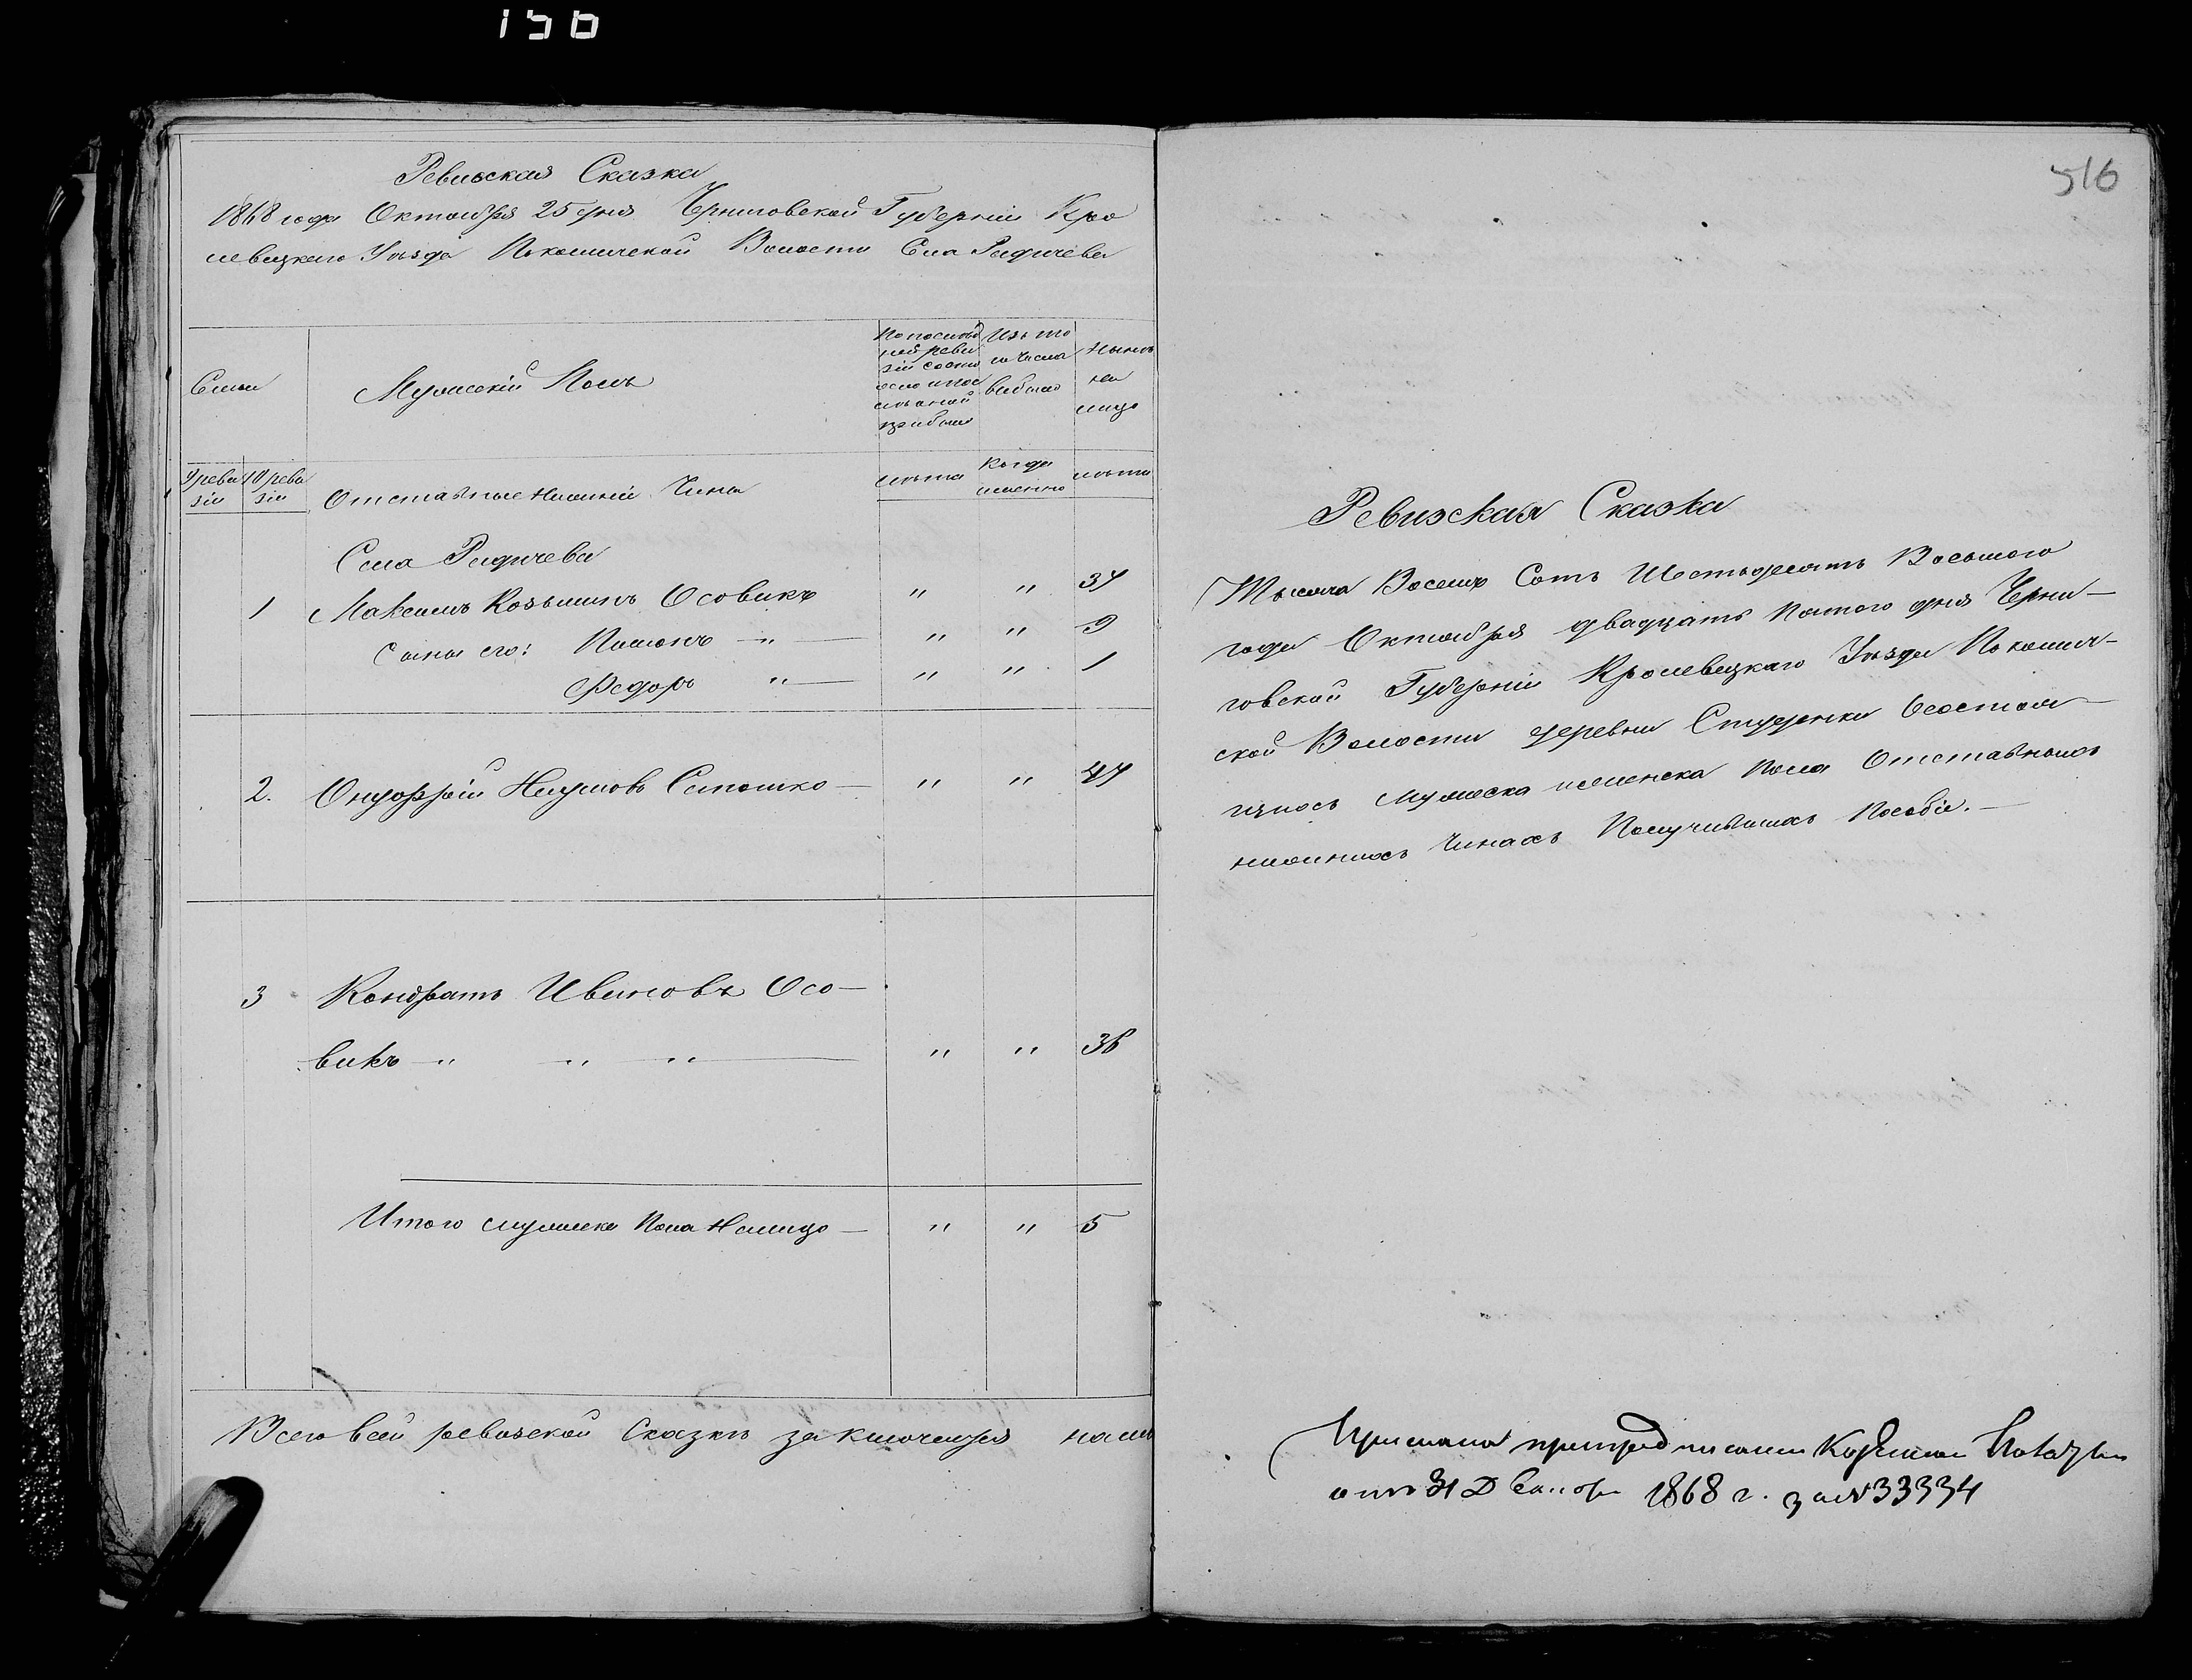 156
Ревизская Сказка
1868 года Октября 25 дня Черниговской Губерніи Кро
левецкаго Уѣзда Покошичской Волости Села Рыдичева
Семьи
Мужескій Полъ
По послѣд
ней реви
зіи состо
яло и пос
лѣ оной
прибыло
Изъ то
го числа
выбыло
Нынѣ
на
лицо
9 реви
зіи
10 реви
зіи
Отставные нижніе Чины
лѣта
Когда
именно
лѣта
Села Рыдичева
1 Максимъ Козьминъ Осовикъ " " 34
Сыны его: Пименъ — " — " " 9
Федоръ " — " " 1
2. Онуфрій Наумовъ Сташко — " " 47
3 Кондратъ Ивановъ Осо—
викъ — " " " — " " 36
Итого мужеска Пола Налицо — " " 5
Всего въ сей ревизской Сказкѣ заключается нали
516
Ревизская Сказка
Тысяча Восемь Сотъ Шестьдесятъ Восьмого
года Октября двадцать Пятого дня Черни—
говской Губерніи Кролевецкаго Уѣзда Покошич—
ской Волости деревни Студенки О состоя—
щихъ мужеска и женска Пола Отставныхъ
нижнихъ Чинахъ Получившихъ Пособіе.—
Прислана при предписаніи Казенной Палаты
отъ 31 Декабря 1868 г. за № 33334